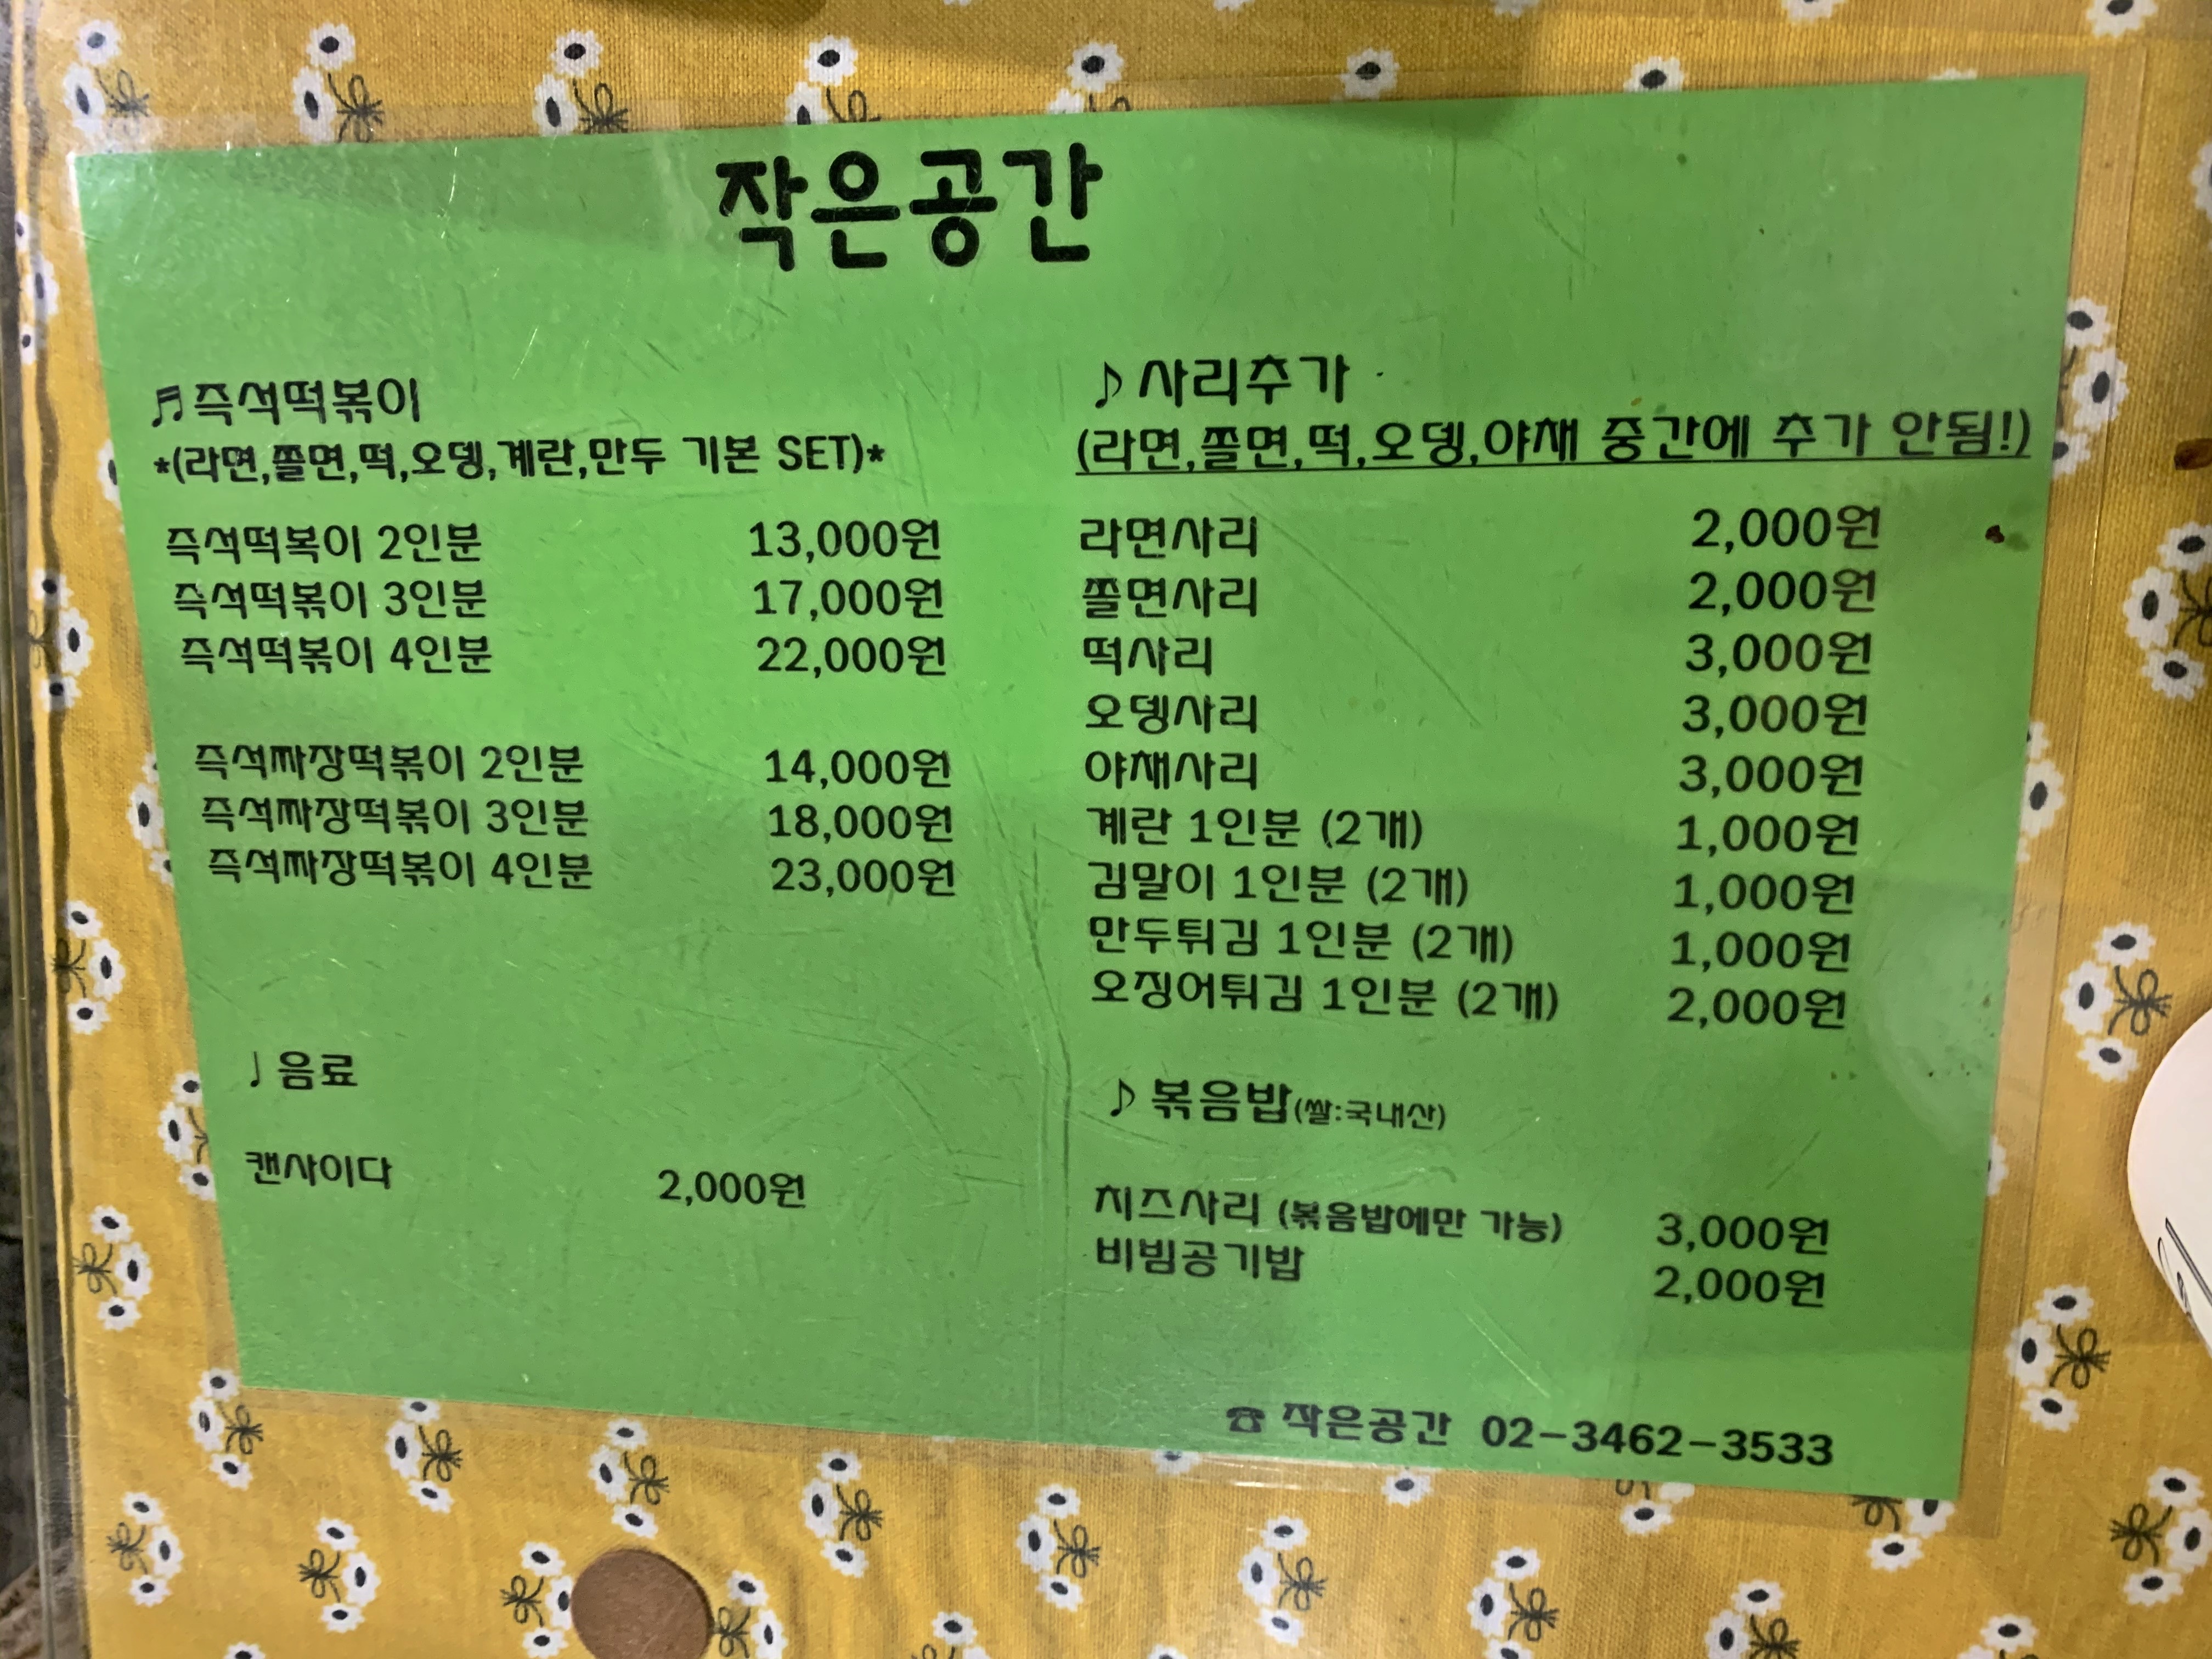 작은공간
♬즉석떡볶이
*(라면,쫄면,떡,오뎅,계란,만두 기본 SET)*
즉석떡복이 2인분 13,000원
즉석떡볶이 3인분 17,000원
즉석떡볶이 4인분 22,000원
즉석짜장떡볶이 2인분 14,000원
즉석짜장떡볶이 3인분 18,000원
즉석짜장떡볶이 4인분 23,000원
♩음료
캔사이다 2,000원
♪사리추가
(라면,쫄면,떡,오뎅,야채 중간에 추가 안됨!)
라면사리 2,000원
쫄면사리 2,000원
떡사리 3,000원
오뎅사리 3,000원
야채사리 3,000원
계란 1인분 (2개) 1,000원
김말이 1인분 (2개) 1,000원
만두튀김 1인분 (2개) 1,000원
오징어튀김 1인분 (2개) 2,000원
♪볶음밥(쌀:국내산)
치즈사리 (볶음밥에만 가능) 3,000원
비빔공기밥 2,000원
☎ 작은공간 02-3462-3533